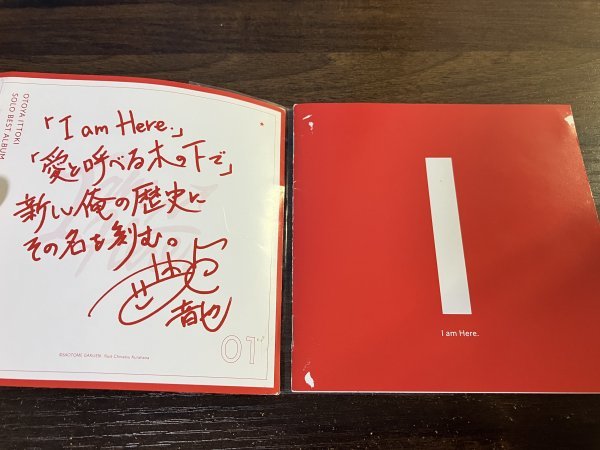 OTOYA ITTOKI
SOLO BEST ALBUM
「I am Here.」
「愛と呼べる木の下で」
新しい俺の歴史に
その名を刻む。
音也
01
I am Here.